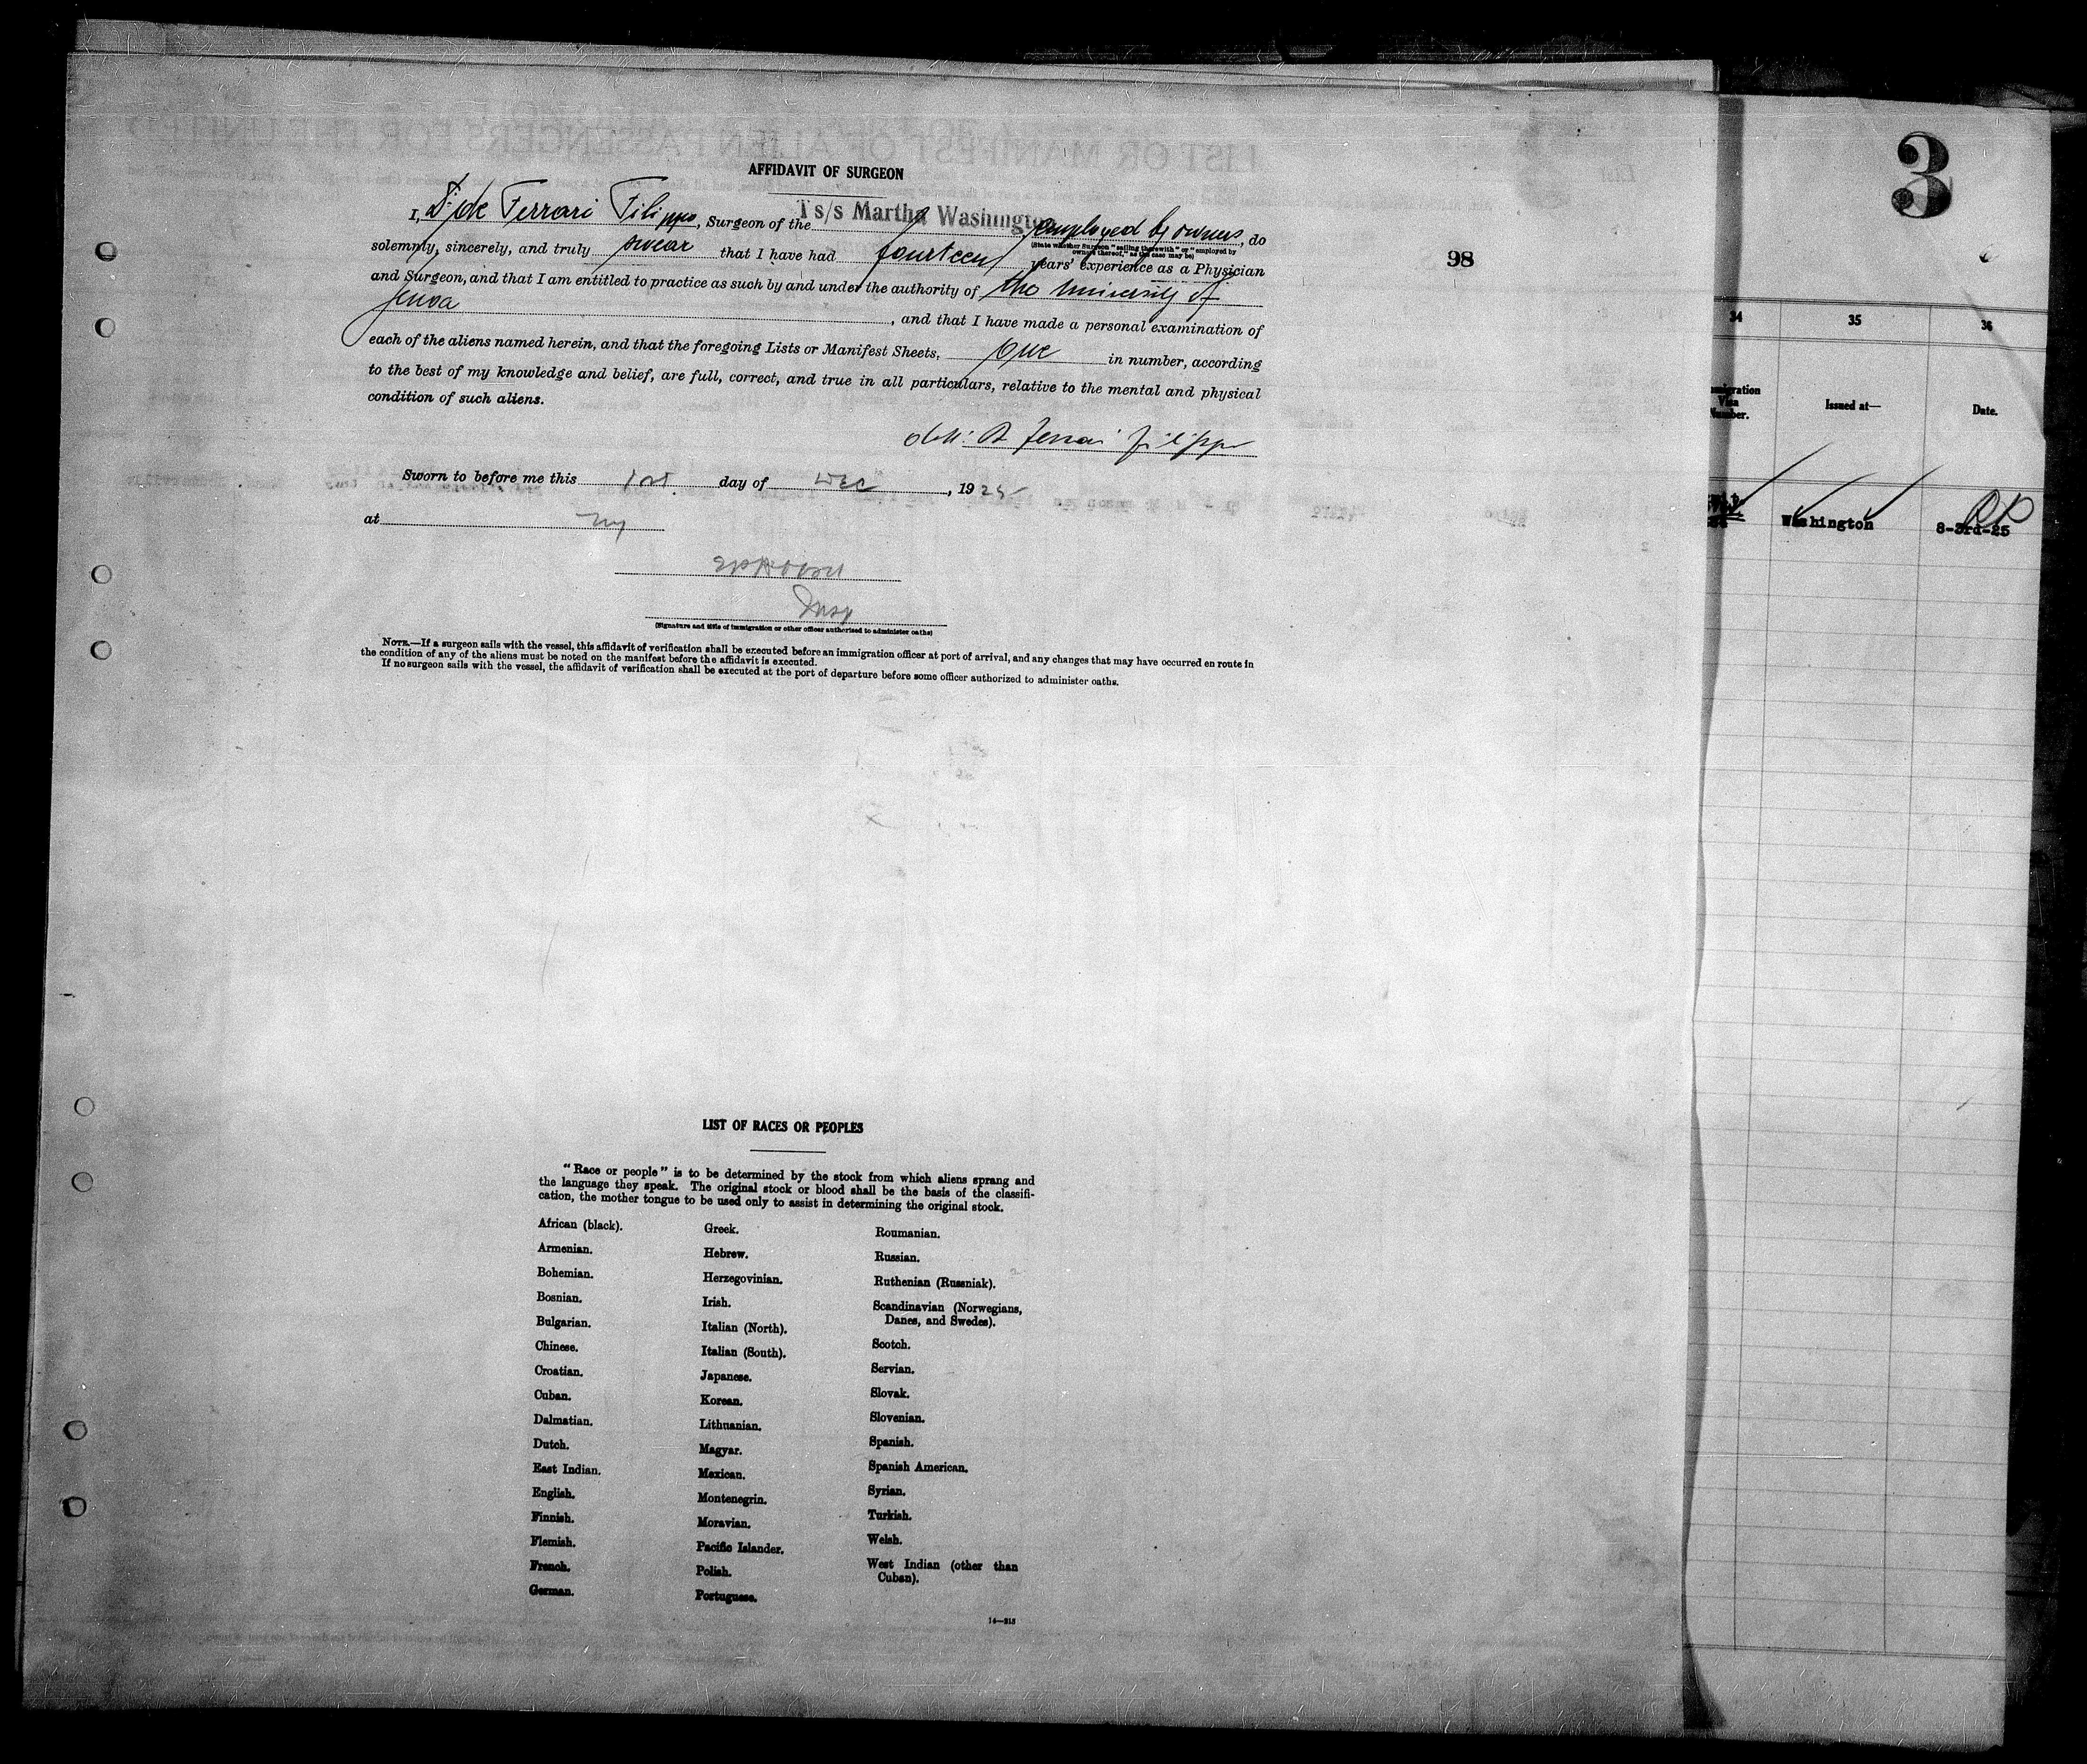 AFFIDAVIT OF SURGEON
I, Dr de Ferrari Filippo, Surgeon of the Ts/s Martha Washington employed by owners, do
(State whether Surgeon "sailing therewith" or "employed by
owners thereof," as the case may be)
solemnly, sincerely, and truly swear that I have had fourteen years' experience as a Physician
and Surgeon, and that I am entitled to practice as such by and under the authority of the University of
Genoa, and that I have made a personal examination of
each of the aliens named herein, and that the foregoing Lists or Manifest Sheets, one in number, according
to the best of my knowledge and belief, are full, correct, and true in all particulars, relative to the mental and physical
condition of such aliens.
Ferrari Filippo
Sworn to before me this 1st day of Dec, 1925
at NY
Insp
(Signature and title of immigration or other officer authorized to administer oaths)
NOTE.—If a surgeon sails with the vessel, this affidavit of verification shall be executed before an immigration officer at port of arrival, and any changes that may have occurred en route in
the condition of any of the aliens must be noted on the manifest before the affidavit is executed.
If no surgeon sails with the vessel, the affidavit of verification shall be executed at the port of departure before some officer authorized to administer oaths.
98
LIST OF RACES OR PEOPLES
"Race or people" is to be determined by the stock from which aliens sprang and
the language they speak. The original stock or blood shall be the basis of the classifi-
cation, the mother tongue to be used only to assist in determining the original stock.
African (black).
Armenian.
Bohemian.
Bosnian.
Bulgarian.
Chinese.
Croatian.
Cuban.
Dalmatian.
Dutch.
East Indian.
English.
Finnish.
Flemish.
French.
German.
Greek.
Hebrew.
Herzegovinian.
Irish.
Italian (North).
Italian (South).
Japanese.
Korean.
Lithuanian.
Magyar.
Mexican.
Montenegrin.
Moravian.
Pacific Islander.
Polish.
Portuguese.
Roumanian.
Russian.
Ruthenian (Russniak).
Scandinavian (Norwegians,
Danes, and Swedes).
Scotch.
Servian.
Slovak.
Slovenian.
Spanish.
Spanish American.
Syrian.
Turkish.
Welsh.
West Indian (other than
Cuban).
14—215
3
34 35 36
migration
Visa
Number.
Issued at—
Date.
Washington
8-3rd-25